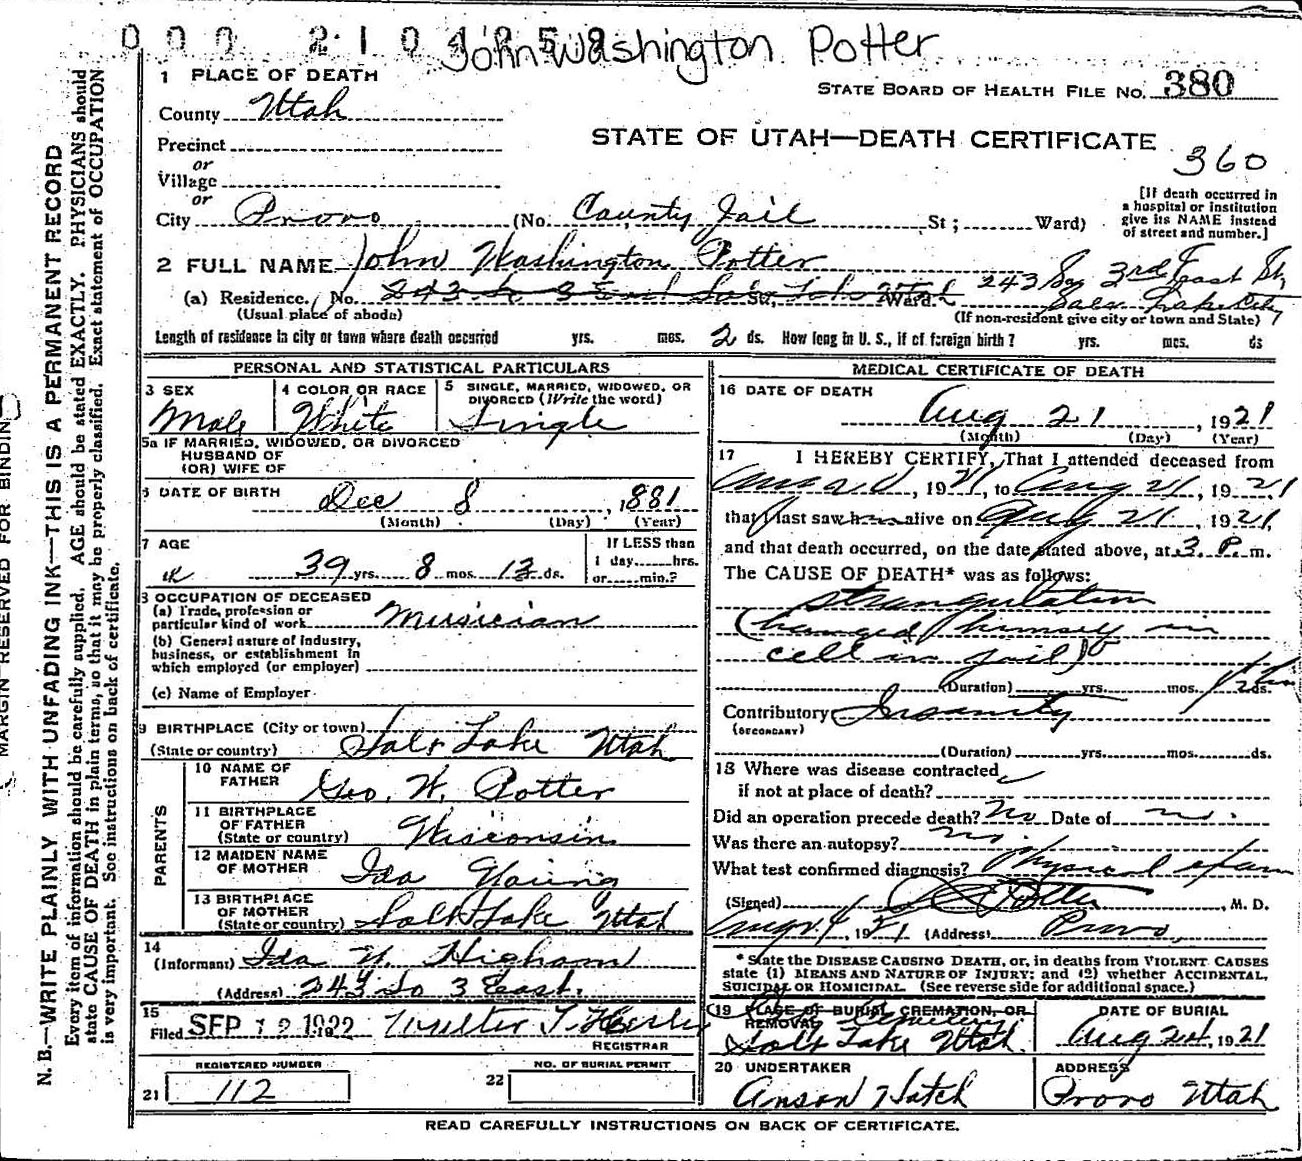 John Washington Potter
1 PLACE OF DEATH
STATE BOARD OF HEALTH FILE NO. 380
County Utah
STATE OF UTAH—DEATH CERTIFICATE
360
Precinct
or
Village
or
[If death occurred in
a hospital or institution
give its NAME instead
of street and number.]
City Provo (No. County Jail St; Ward)
2 FULL NAME John Washington Potter
(a) Residence. No. St. Ward. 243 So 3rd East St, Salt Lake City
(Usual place of abode) (If non-resident give city or town and State)
Length of residence in city or town where death occurred yrs. mos. 2 ds. How long in U. S., if of foreign birth? yrs. mos. ds
PERSONAL AND STATISTICAL PARTICULARS
3 SEX Male
4 COLOR OR RACE White
5 SINGLE, MARRIED, WIDOWED, OR
DIVORCED (Write the word)
Single
5a IF MARRIED, WIDOWED, OR DIVORCED
HUSBAND OF
(OR) WIFE OF
6 DATE OF BIRTH Dec 8, 1881
(Month) (Day) (Year)
7 AGE 39 yrs. 8 mos. 13 ds.
If LESS than
1 day hrs.
or min.?
8 OCCUPATION OF DECEASED
(a) Trade, profession or
particular kind of work Musician
(b) General nature of industry,
business, or establishment in
which employed (or employer)
(c) Name of Employer
9 BIRTHPLACE (City or town)
(State or country) Salt Lake Utah
PARENTS
10 NAME OF
FATHER Geo. W. Potter
11 BIRTHPLACE
OF FATHER
(State or country) Wisconsin
12 MAIDEN NAME
OF MOTHER Ida Young
13 BIRTHPLACE
OF MOTHER
(State or country) Salt Lake Utah
14
(Informant) Ida Y. Higham
(Address) 243 So 3 East.
15
Filed SEP 12 1922 Walter T. Hasler
REGISTRAR
REGISTERED NUMBER
21 112
NO. OF BURIAL PERMIT
22
MEDICAL CERTIFICATE OF DEATH
16 DATE OF DEATH
Aug 21, 1921
(Month) (Day) (Year)
17 I HEREBY CERTIFY, That I attended deceased from
Aug 21, 1921, to Aug 21, 1921
that I last saw h alive on Aug 21, 1921,
and that death occurred, on the date stated above, at 3 P. m.
The CAUSE OF DEATH* was as follows:
Strangulation
(hanged himself in
cell in jail)
(Duration) yrs. mos. ds.
Contributory Insanity
(SECONDARY)
(Duration) yrs. mos. ds.
18 Where was disease contracted
if not at place of death?
Did an operation precede death? No Date of no.
Was there an autopsy? no.
What test confirmed diagnosis? Physical exam
(Signed) Potter, M. D.
Aug 1921 (Address) Provo,
* State the DISEASE CAUSING DEATH, or, in deaths from VIOLENT CAUSES
state (1) MEANS AND NATURE OF INJURY; and (2) whether ACCIDENTAL,
SUICIDAL OR HOMICIDAL. (See reverse side for additional space.)
19 PLACE OF BURIAL, CREMATION, OR
REMOVAL City Cemetery
Salt Lake Utah.
DATE OF BURIAL
Aug 24, 1921
20 UNDERTAKER
Anson Hatch
ADDRESS
Provo Utah
READ CAREFULLY INSTRUCTIONS ON BACK OF CERTIFICATE.
MARGIN RESERVED FOR BINDIN
N. B.—WRITE PLAINLY WITH UNFADING INK—THIS IS A PERMANENT RECORD
Every item of information should be carefully supplied. AGE should be stated EXACTLY. PHYSICIANS should
state CAUSE OF DEATH in plain terms, so that it may be properly classified. Exact statement of OCCUPATION
is very important. See instructions on back of certificate.